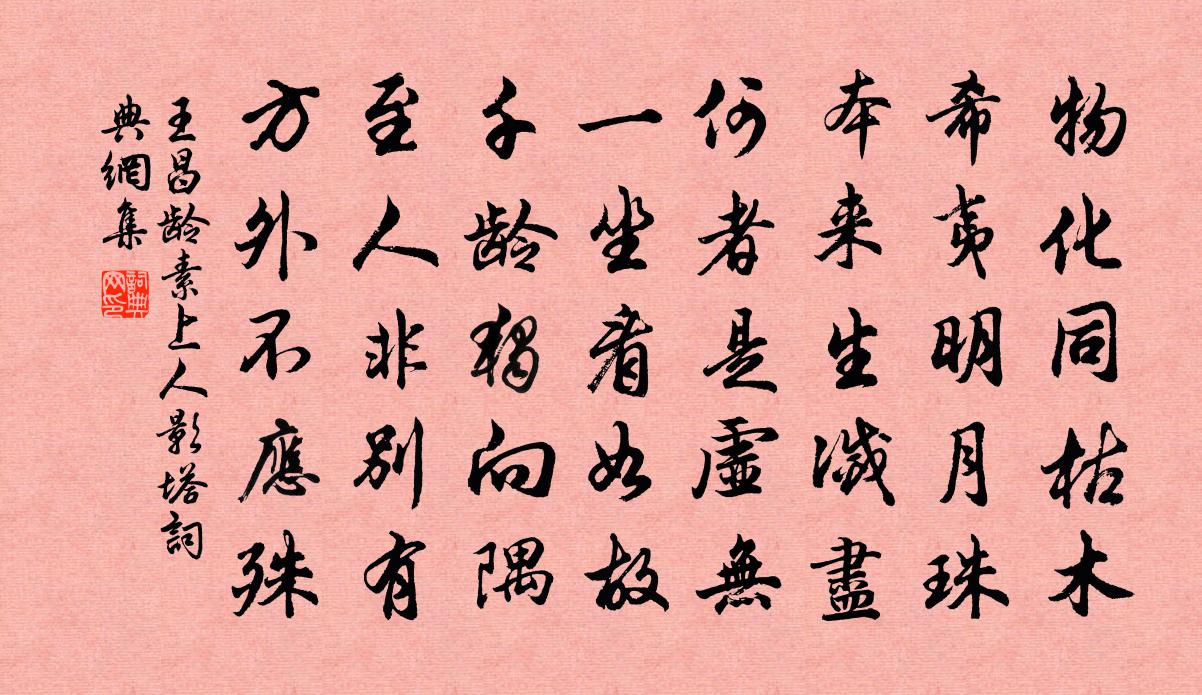 物化同枯木
希夷明月珠
本来生滅盡
何者是虛無
一坐看如故
千龄獨向隅
至人非別有
方外不應殊
王昌龄素上人影塔詞
典網集
詞典
网印